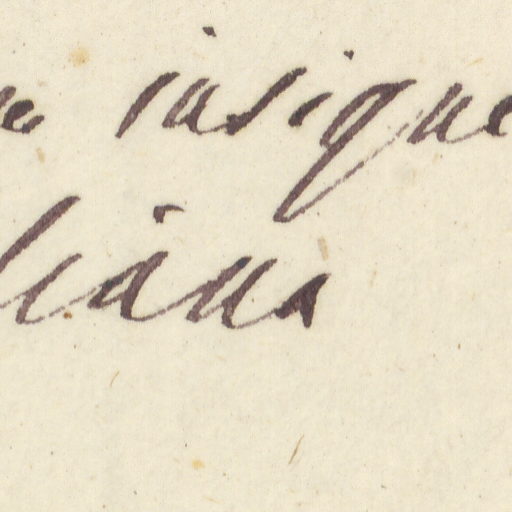 insigne
liana